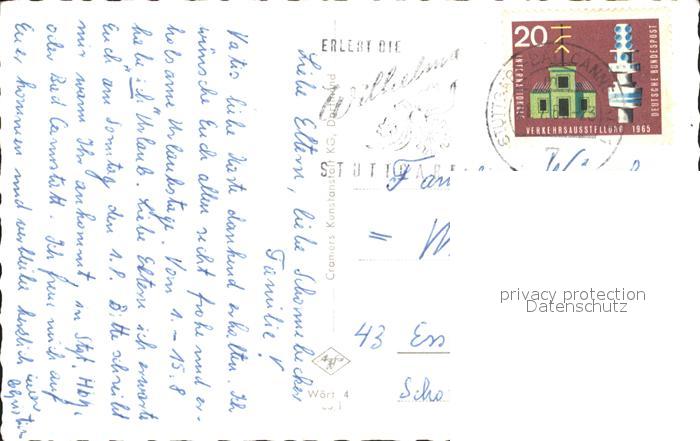 Liebe Eltern, liebe Schonnebecker
Familie!
Vatis liebe Karte dankend erhalten. Ich
wünsche Euch allen recht frohe und er-
holsame Urlaubstage. Vom 1. - 15.8
habe ich Urlaub. Liebe Eltern ich erwarte
Euch am Sonntag den 1.8. Bitte schreibt
mir wann Ihr ankommt in Stgt. Hbf.
oder Bad Cannstatt. Ich freu mich auf
Euer kommen und verbleibe herzlich
Cramers Kunstanstalt KG. Dortmund
Agfa
Würt. 4
ERLEBT DIE
Wilhelma
STUTTGART
20
INTERNATIONALE
VERKEHRSAUSSTELLUNG 1965
DEUTSCHE BUNDESPOST
STUTTGART-BAD CANNSTATT
7
Fam
43 Ess
Scho
privacy protection
Datenschutz